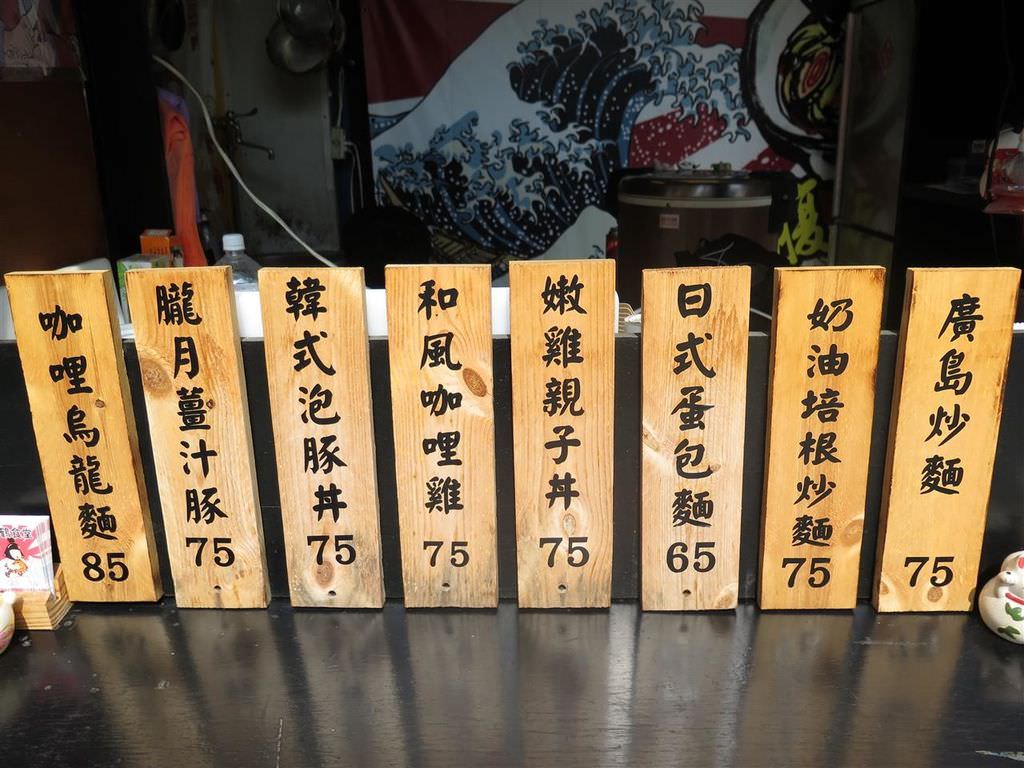 咖哩烏龍麵
85
朧月薑汁豚
75
韓式泡豚丼
75
和風咖哩雞
75
嫩雞親子丼
75
日式蛋包麵
65
奶油培根炒麵
75
廣島炒麵
75